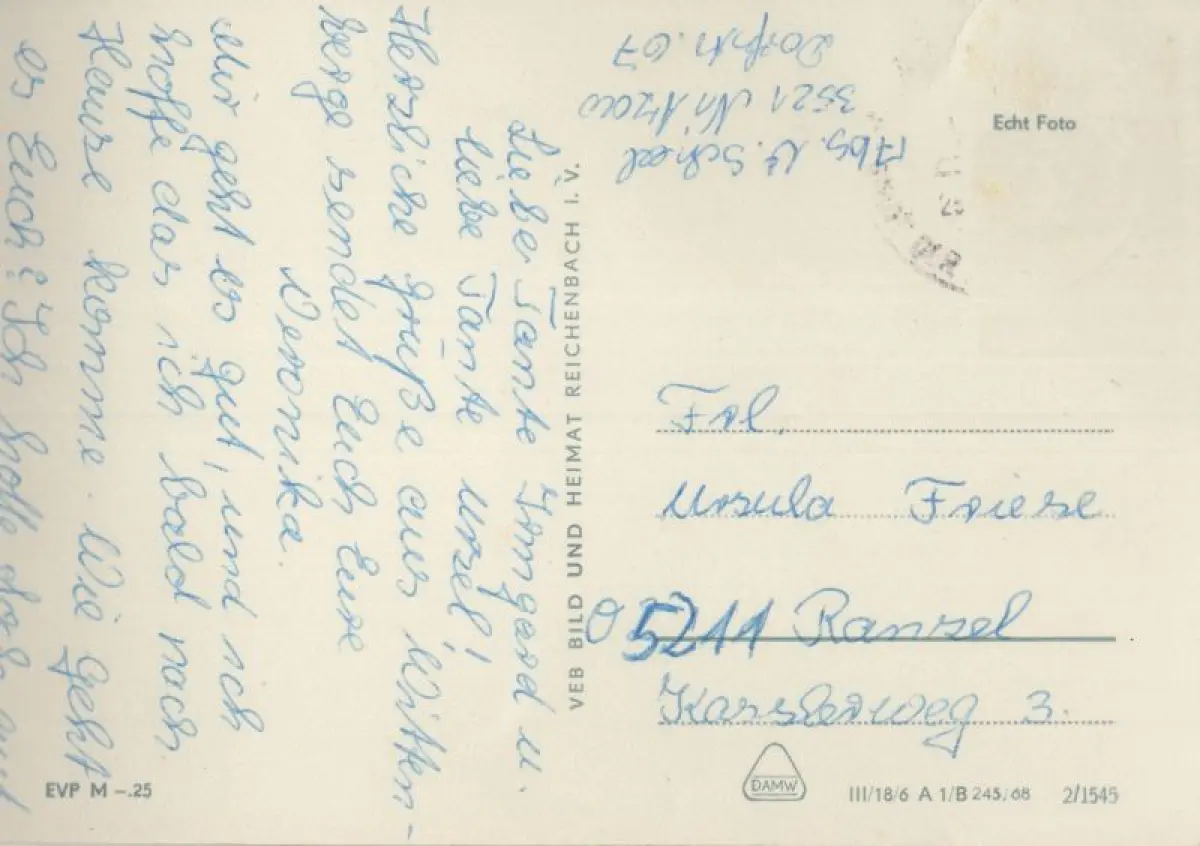 Liebe Tante Irmgard u.
liebe Tante Urzel!
Herzliche Grüße aus Witten-
berge sendet Euch Eure
Veronika.
Mir geht es gut, und ich
hoffe das ich bald nach
Hause komme. Wie geht
es Euch? Ich hoffe doch
Abs. V. Scheel
3521 Nitzow
Dorfstr. 67
VEB BILD UND HEIMAT REICHENBACH I. V.
Echt Foto
Frl.
Ursula Friese
5211 Ranzel
3.
EVP M –.25
DAMW
III/18/6 A 1/B 245/68 2/1545